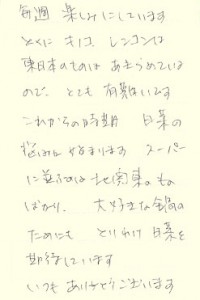 毎週 楽しみにしています
とくに キノコ、レンコンは
東日本のものは あきらめている
ので、とても 有難いです
これからの時期 白菜の
悩みに なります スーパー
に並ぶのは 北関東のもの
ばかり、大好きな鍋の
ためにも とりわけ 白菜を
期待しています
いつも ありがとうございます